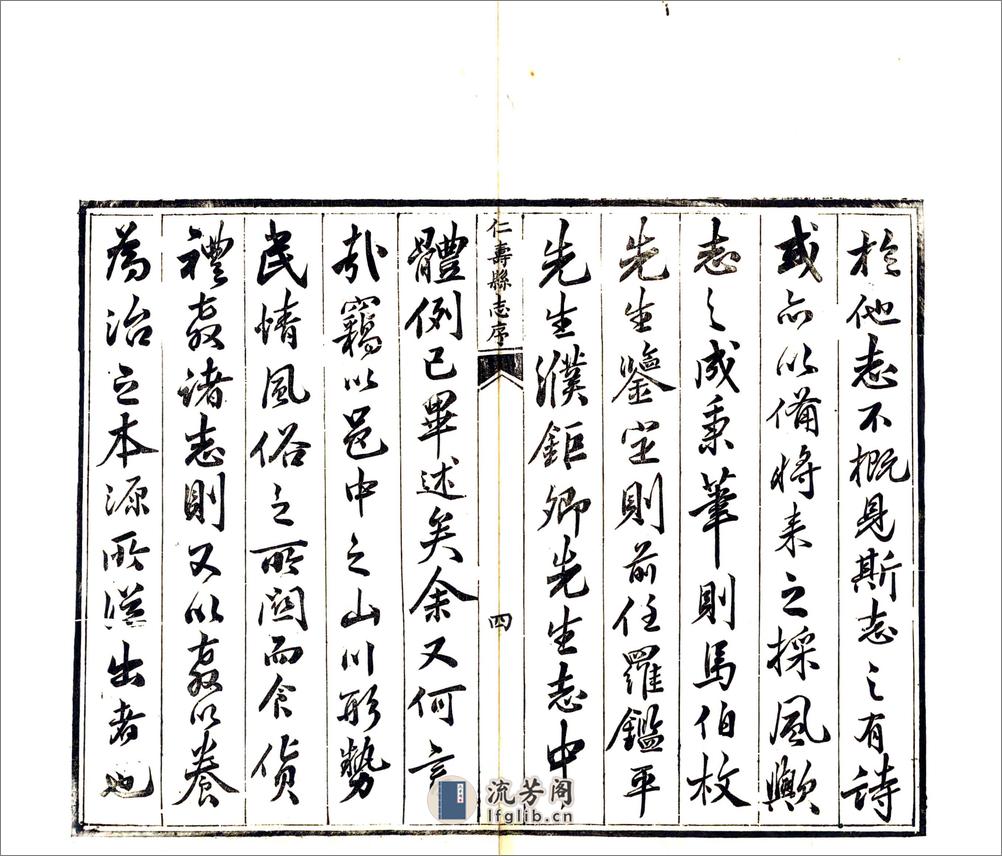 於他志不概見斯志之有詩
或亦以備將来之採風歟
志之成秉筆則馬伯枚
先生鑒定則前任羅鑑平
先生濮鉅卿先生志中
仁壽縣志序
四
體例已畢述矣余又何言
哉竊以邑中之山川形勢
民情風俗之所關而食貨
禮教諸志則又以教以養
為治之本源所從出者也
流芳阁
lfglib.cn